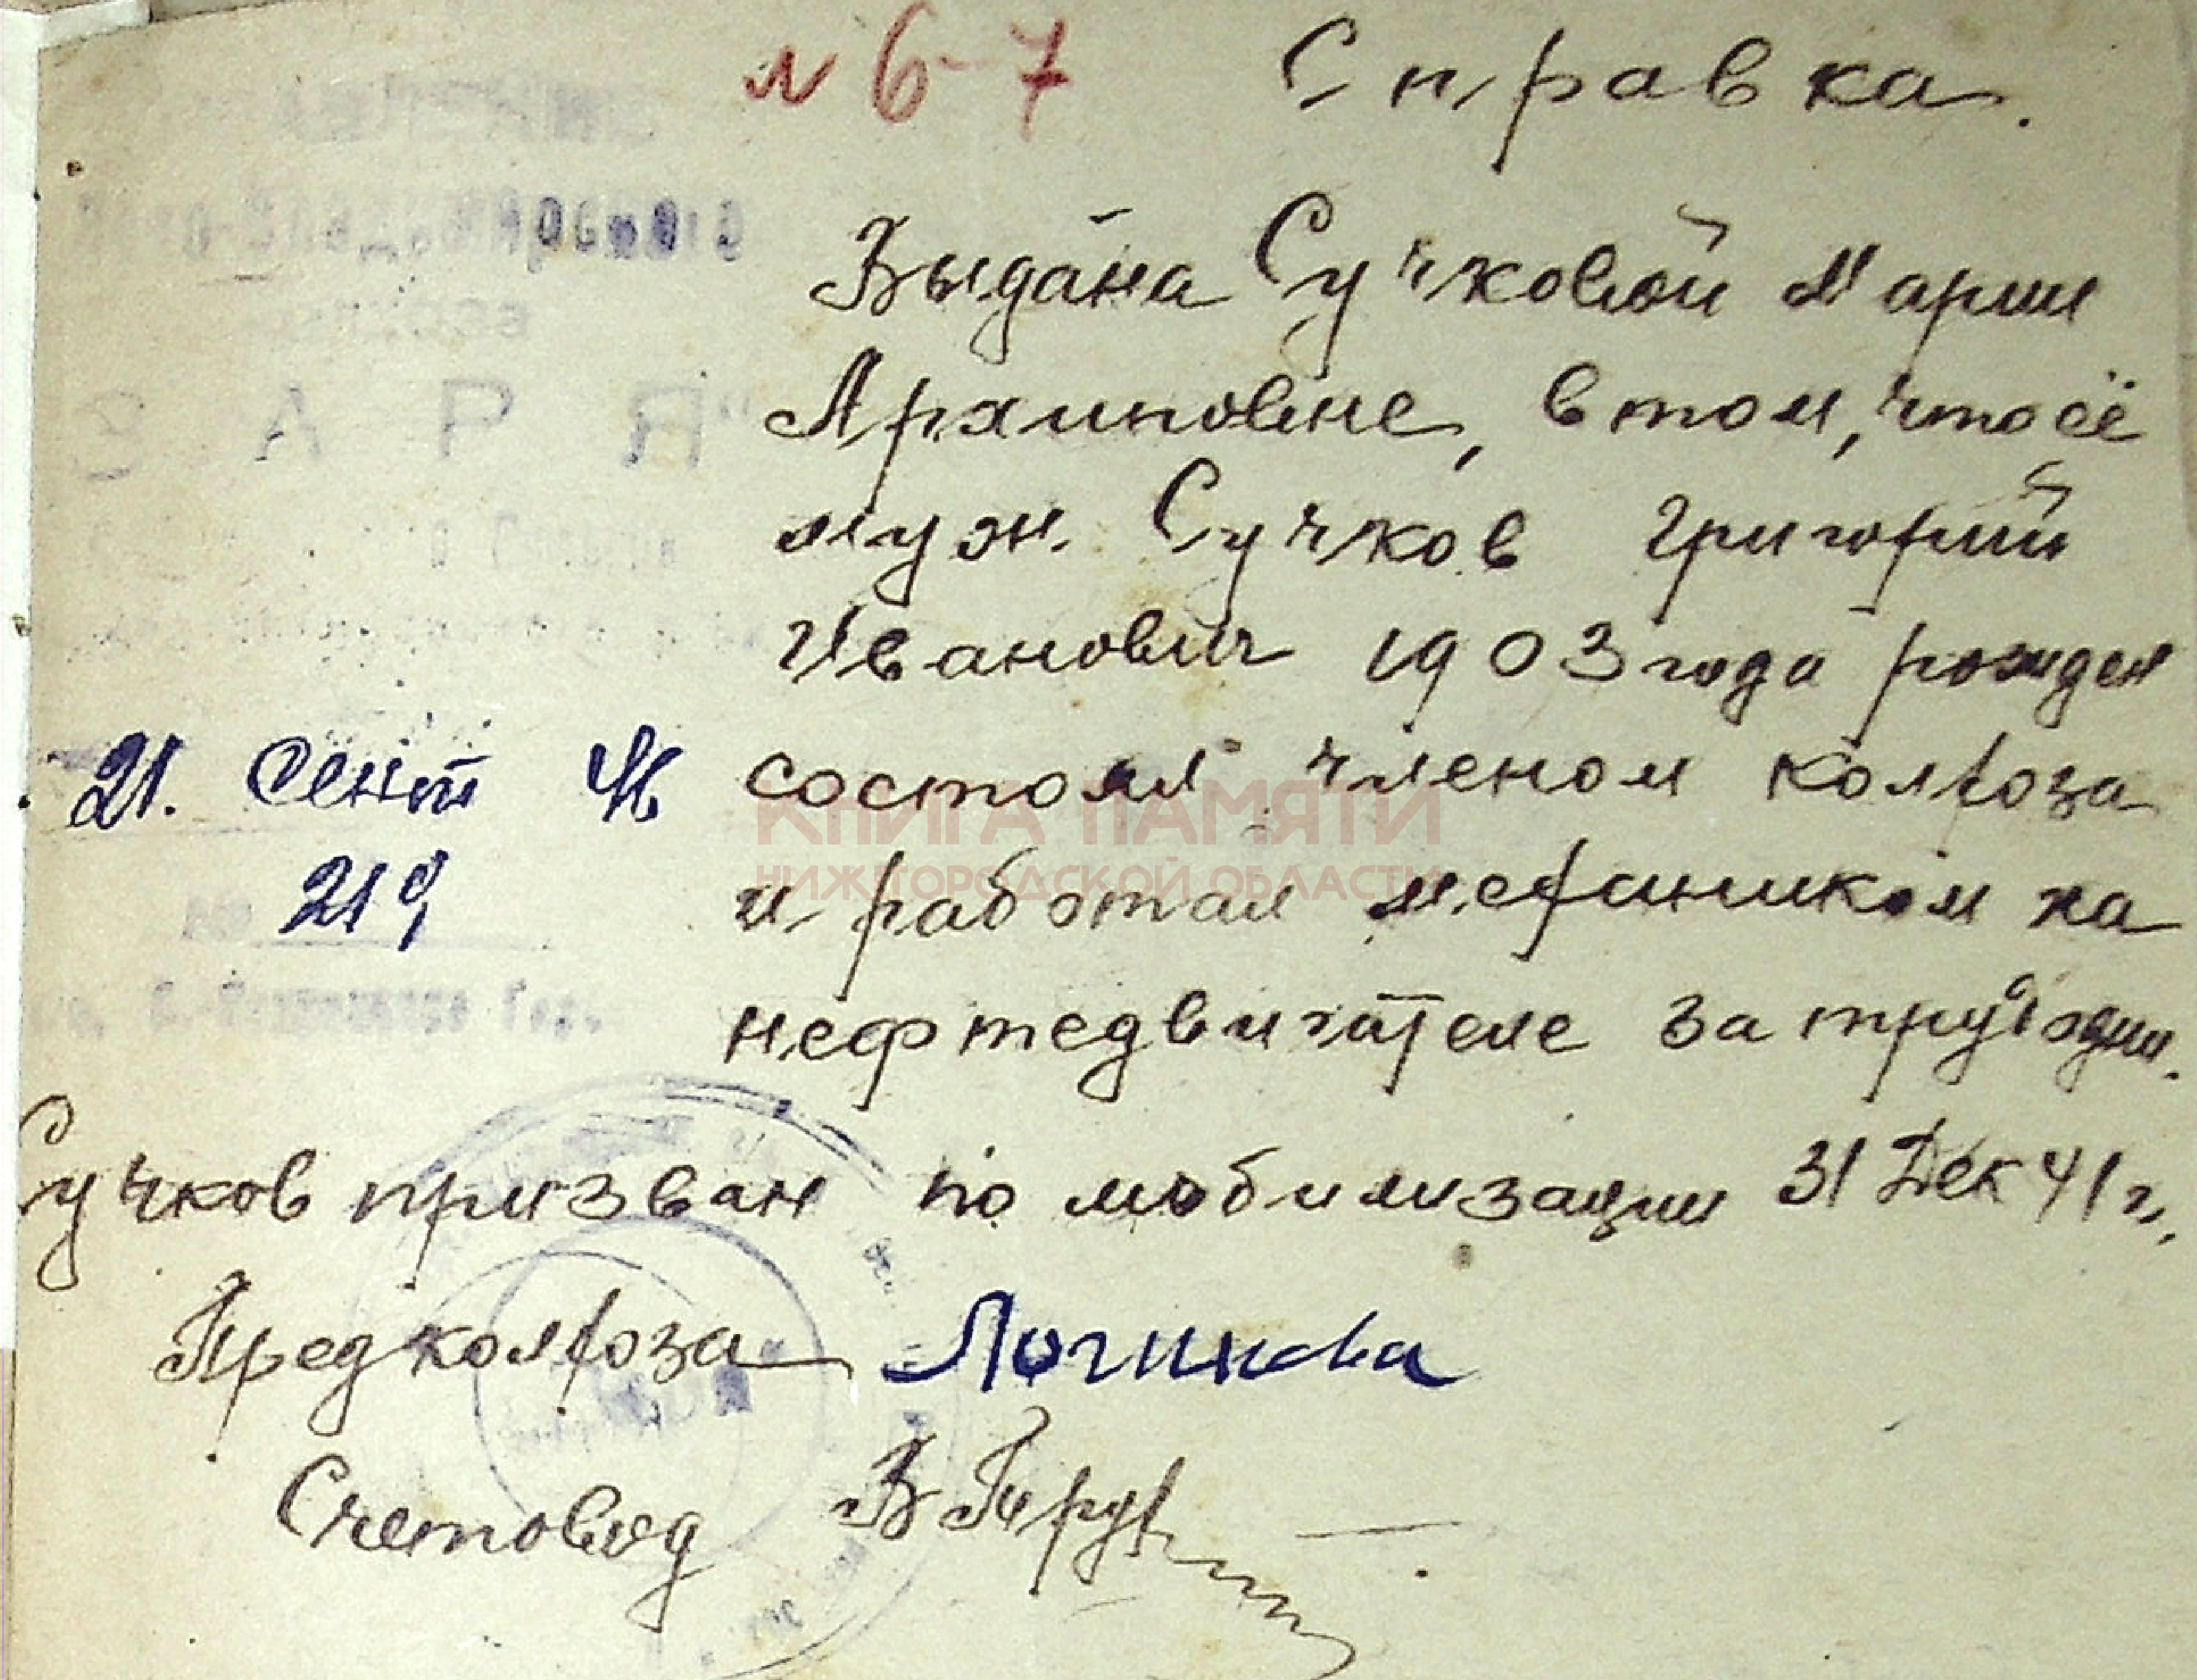 № 6-7 Справка.
Выдана Сучковой Марии
Архиповне, в том, что её
муж Сучков Григорий
Иванович 1903 года рожден
21. Сент 46 состоял членом колхоза
219 и работал механиком на
нефтедвигателе за трудодни.
Сучков призван по мобилизации 31 Дек 41 г.
Пред колхоза Логинова
Счетовод В
ЗАРЯ"
КНИГА ПАМЯТИ
НИЖЕГОРОДСКОЙ ОБЛАСТИ